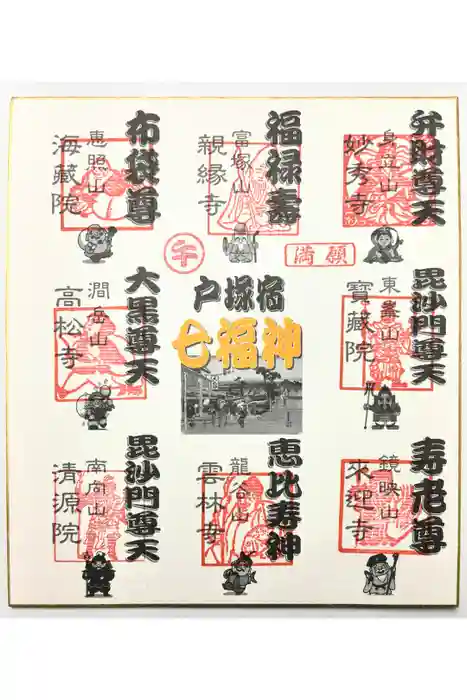 弁財尊天
身立山
妙秀寺
福禄壽
富塚山
親縁寺
布袋尊
恵照山
海蔵院
満願
午
戸塚宿
七福神
毘沙門尊天
東峯山
寶蔵院
大黒尊天
潤岳山
高松寺
寿老尊
鏡映山
來迎寺
恵比寿神
龍谷山
雲林寺
毘沙門尊天
南向山
清源院